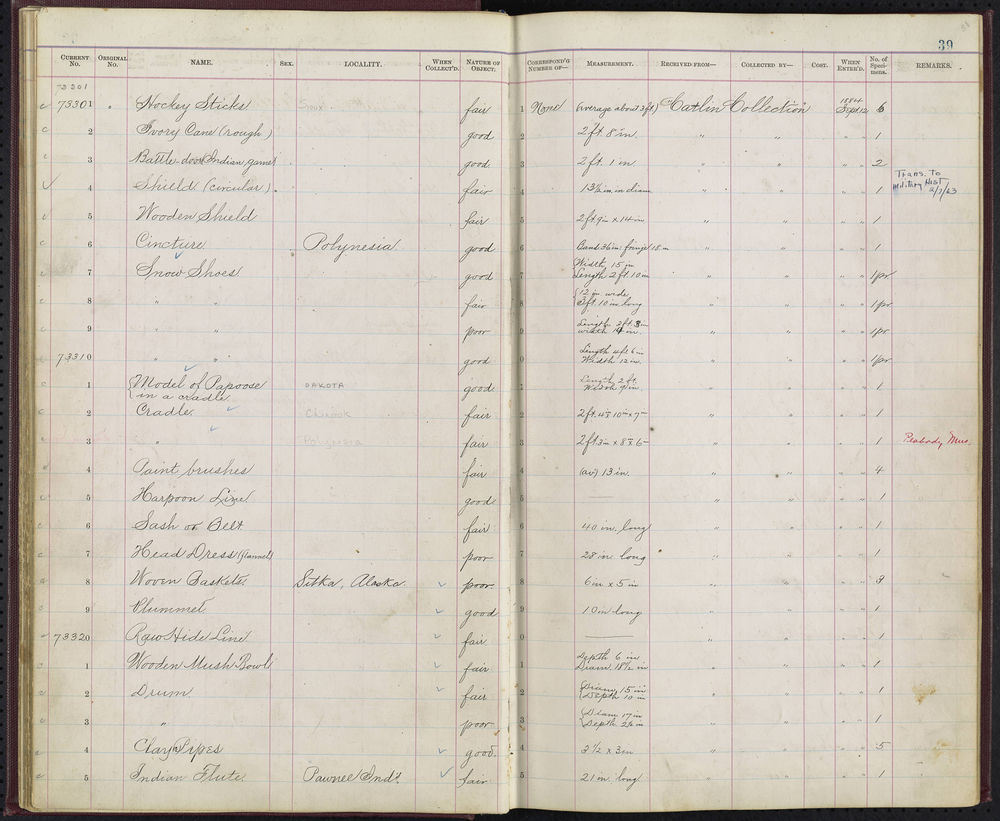 39
CURRENT No. ORIGINAL No. NAME. SEX. LOCALITY. WHEN COLLECT'D. NATURE OF OBJECT. CORRESPOND'G NUMBER OF— MEASUREMENT. RECEIVED FROM— COLLECTED BY— COST. WHEN ENTER'D. No. of Specimens. REMARKS.
73301
73301 Hockey Sticks Sioux fair 1 None Average about 3 ft) Catlin Collection 1884 Sept. 12 6
2 Ivory Cane (rough) good 2 2 ft. 8 in. " " " " 1
3 Battle-door Indian game good 3 2 ft. 1 in. " " " " 2
Trans. to Military Hist. 2/7/63
4 Shield (circular). fair 4 13½ in. in diam " " " " 1
5 Wooden Shield fair 5 2 ft. 9 in x 14 in " " " " 1
6 Cincture Polynesia. good 6 Band 36 in: fringe 18 in " " " " 1
7 Snow Shoes good 7 Width 15 in Length 2 ft. 10 in " " " " 1 pr
8 " " fair 8 12 in wide, 3 ft. 10 in long " " " " 1 pr
9 " " poor 9 Length 2 ft. 3 in width 14 in. " " " " 1 pr
73310 " " good 0 Length 4 ft 6 in Width 12 in. " " " " 1 pr
1 Model of Papoose in a cradle DAKOTA good 1 Length 2 ft. Width 9 in. " " " " 1
2 Cradle Chinook fair 2 " " " " 1
3 " Polynesia fair 3 " " " " 1 Peabody Mus.
4 Paint brushes fair 4 (av) 13 in. " " " " 4
5 Harpoon Line good 5 " " " " 1
6 Sash or Belt fair 6 40 in. long " " " " 1
7 Head Dress (flannel) poor 7 28 in. long " " " " 1
8 Woven Baskets. Sitka, Alaska. poor 8 6 in x 5 in " " " " 3
9 Plummet good 9 10 in long " " " " 1
73320 Raw Hide Line fair 0 " " " " 1
1 Wooden Mush Bowl fair 1 Depth 6 in Diam. 18½ in " " " " 1
2 Drum fair 2 Diam 15 in Depth 10 in " " " " 1
3 " poor 3 Diam 17 in Depth 2½ in " " " " 1
4 Clay Pipes good. 4 3½ x 3 in " " " " 5
5 Indian Flute Pawnee Inds. fair 5 21 in. long " " " " 1